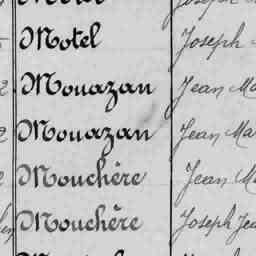 Motel Joseph
2 Mouazan Jean Ma
2 Mouazan Jean Ma
2 Mouchère Jean M
Mouchère Joseph Jea